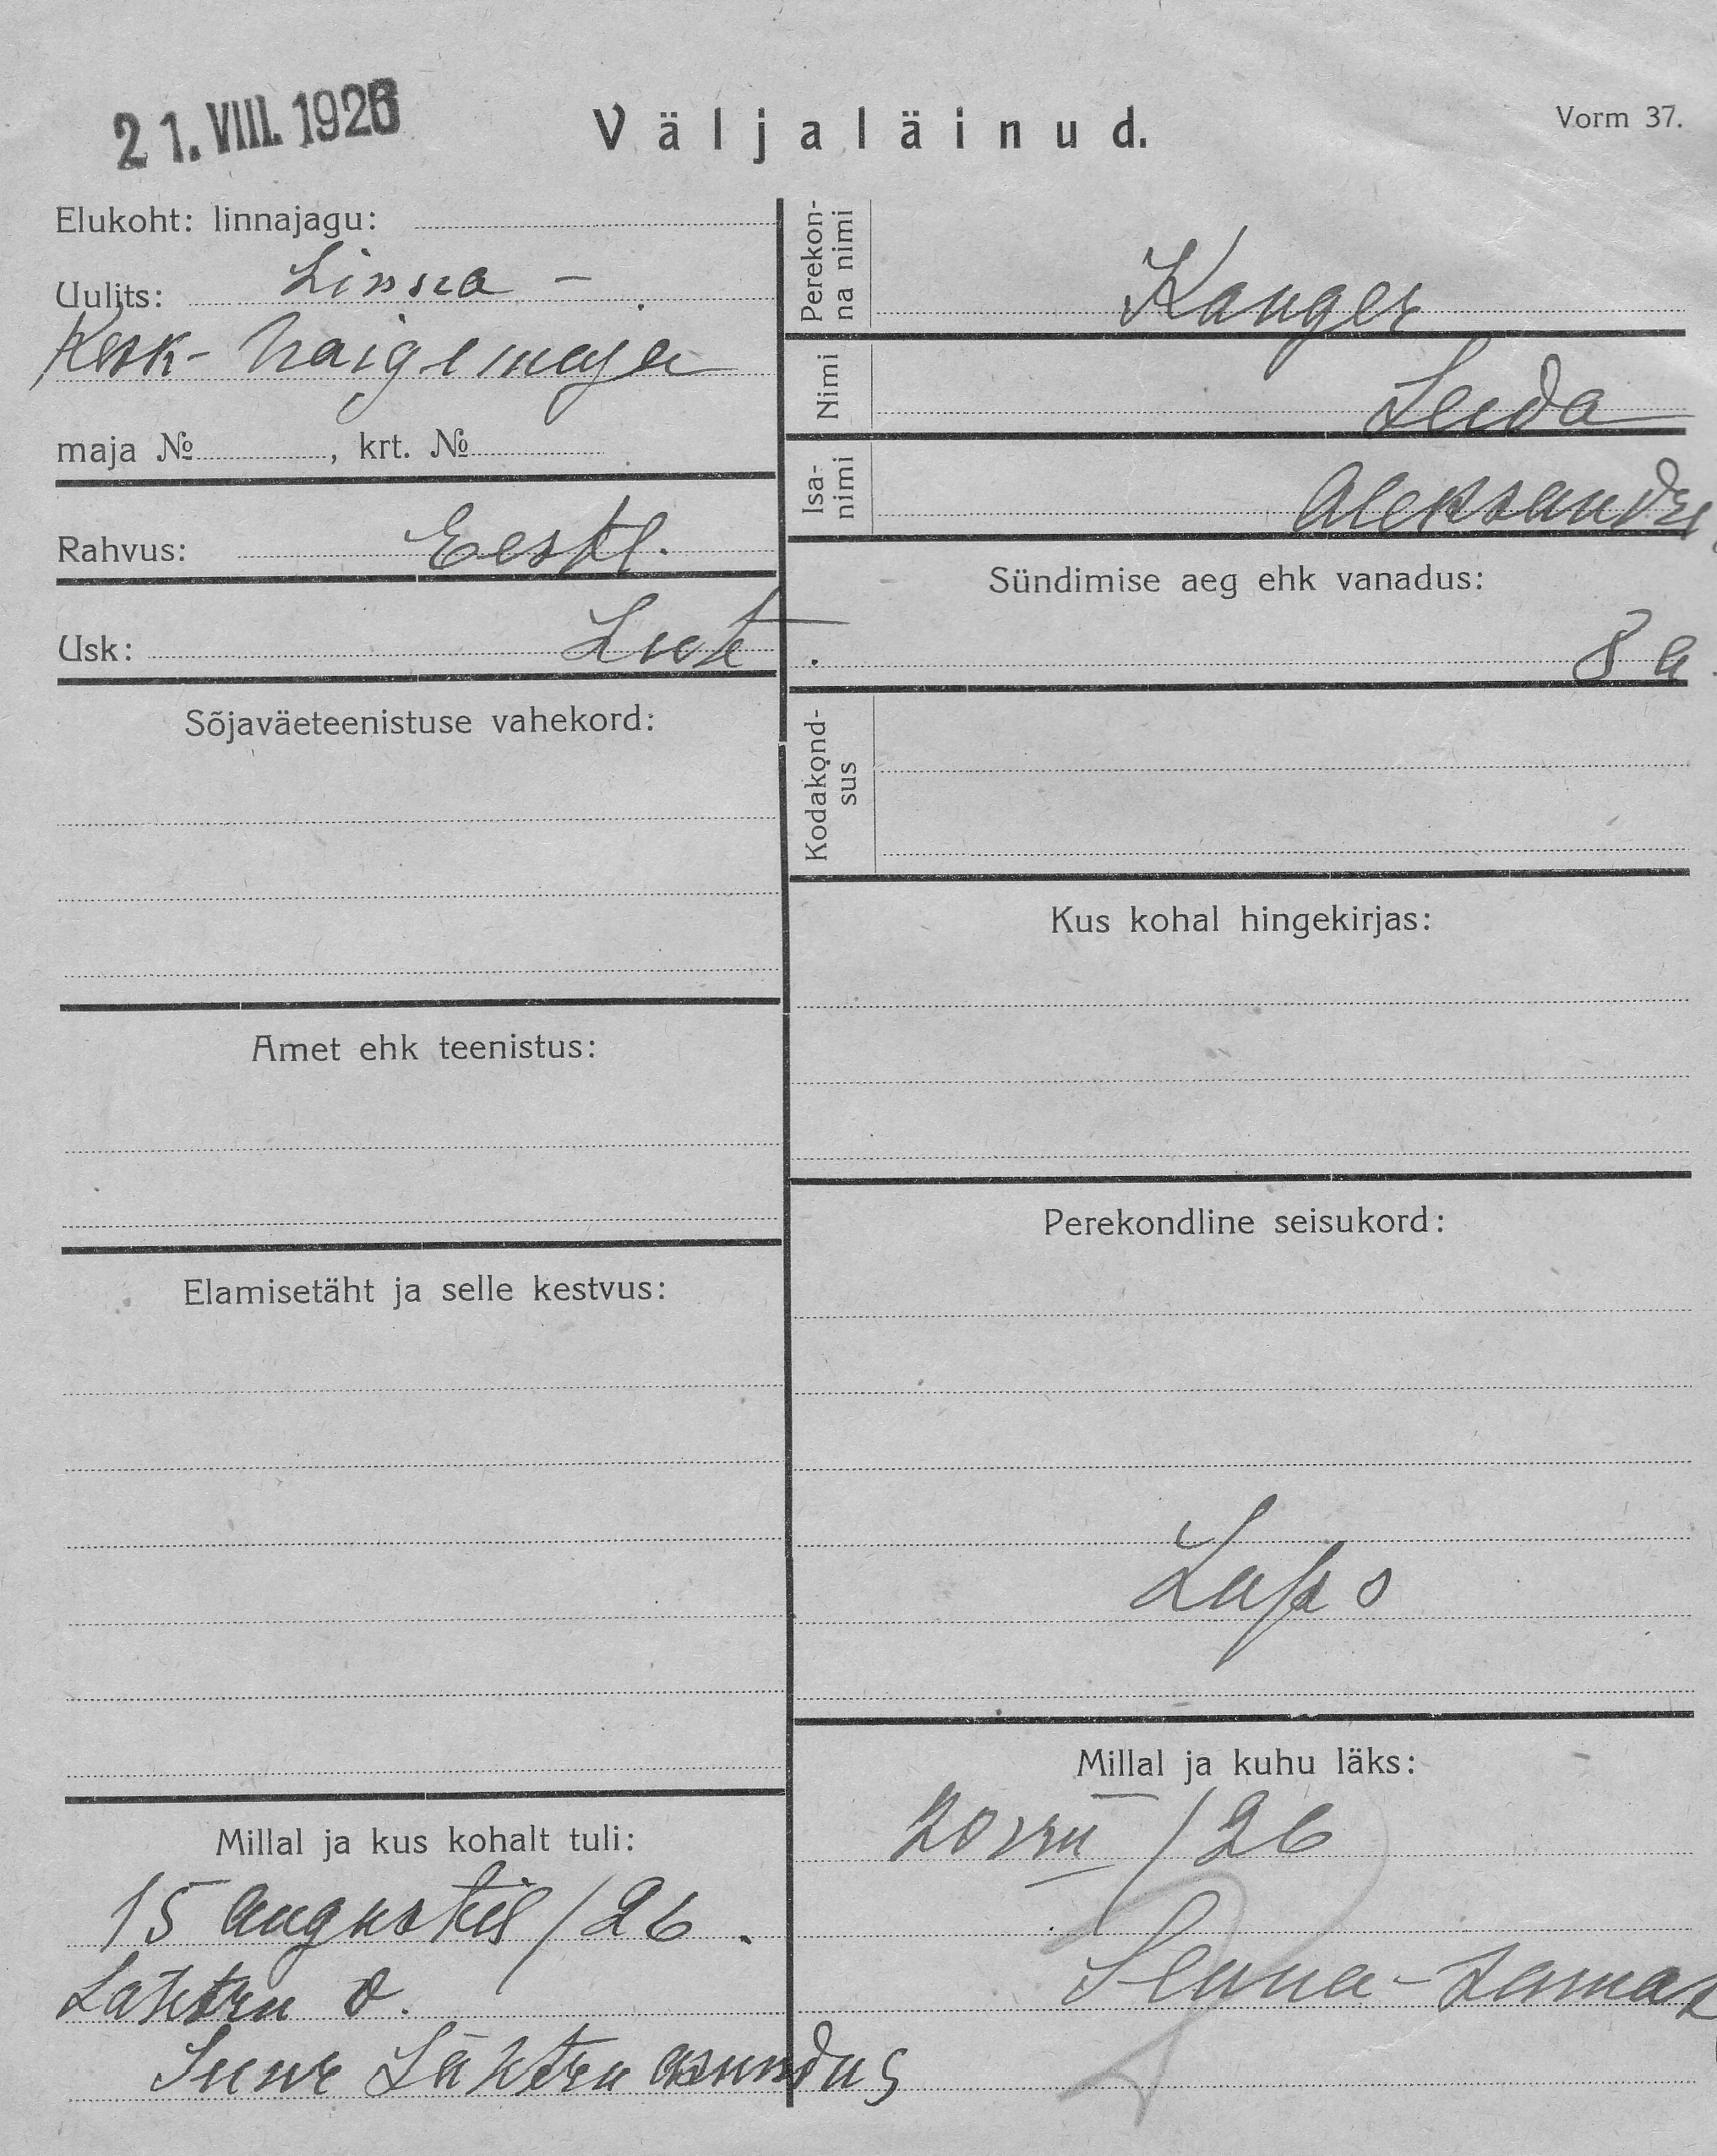 21. VIII. 1926
Väljaläinud.
Vorm 37.
Elukoht: linnajagu:
Uulits: Linna-
Kesk-haigemaja
maja № , krt. №
Rahvus: Eestl.
Usk: Lut.
Sõjaväeteenistuse vahekord:
Amet ehk teenistus:
Elamisetäht ja selle kestvus:
Millal ja kus kohalt tuli:
15 augustil/26.
Lähtru v.
Suure Lähtru asundus
Perekon-
na nimi
Kanger
Nimi
Leida
Isa-
nimi
Aleksandri
Sündimise aeg ehk vanadus:
8 a.
Kodakond-
sus
Kus kohal hingekirjas:
Perekondline seisukord:
Laps
Millal ja kuhu läks:
20 VIII/26